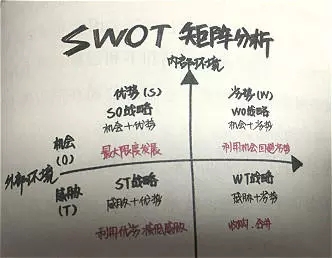 SWOT 矩阵分析
内部环境
优势(S)
劣势(W)
SO战略
WO战略
机会+优势
机会+劣势
机会
(O)
最大限度发展
利用机会回避劣势
外部环境
威胁
(T)
ST战略
WT战略
威胁+优势
威胁+劣势
利用优势.降低威胁
收购.合并